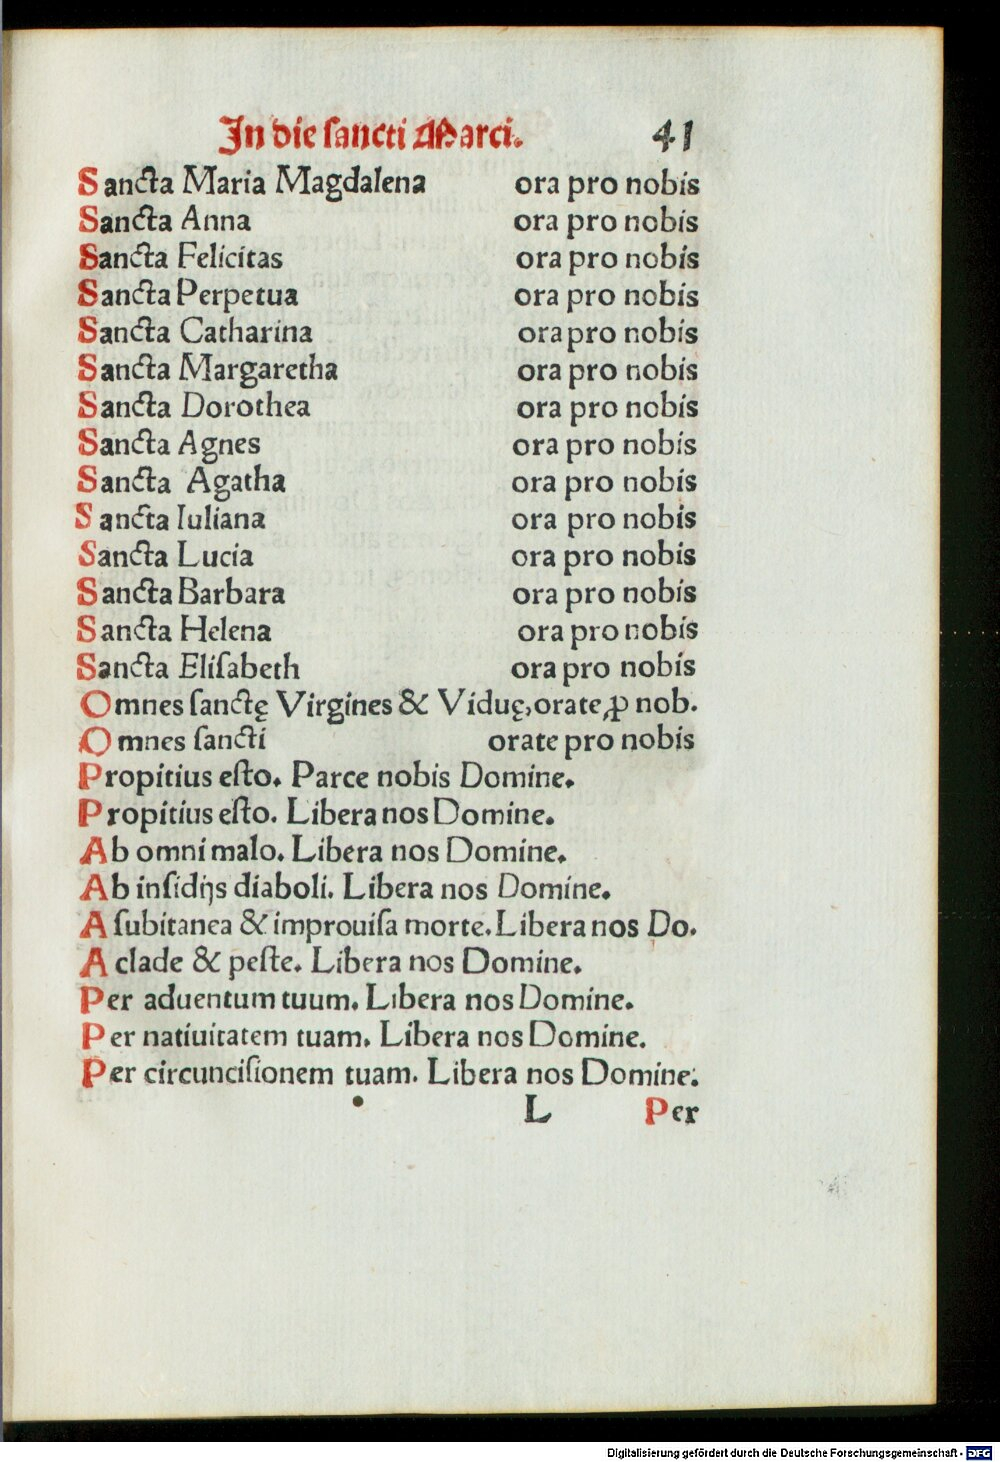 In die sancti Marci. 41
Sancta Maria Magdalena ora pro nobis
Sancta Anna ora pro nobis
Sancta Felicitas ora pro nobis
Sancta Perpetua ora pro nobis
Sancta Catharina ora pro nobis
Sancta Margaretha ora pro nobis
Sancta Dorothea ora pro nobis
Sancta Agnes ora pro nobis
Sancta Agatha ora pro nobis
Sancta Iuliana ora pro nobis
Sancta Lucia ora pro nobis
Sancta Barbara ora pro nobis
Sancta Helena ora pro nobis
Sancta Eliſabeth ora pro nobis
Omnes ſanctę Virgines & Viduę, orate ꝓ nob.
Omnes ſancti orate pro nobis
Propitius eſto. Parce nobis Domine.
Propitius eſto. Libera nos Domine.
Ab omni malo. Libera nos Domine.
Ab inſidijs diaboli. Libera nos Domine.
A ſubitanea & improuiſa morte. Libera nos Do.
A clade & peſte. Libera nos Domine.
Per aduentum tuum. Libera nos Domine.
Per natiuitatem tuam. Libera nos Domine.
Per circunciſionem tuam. Libera nos Domine.
L Per
Digitalisierung gefördert durch die Deutsche Forschungsgemeinschaft - DFG